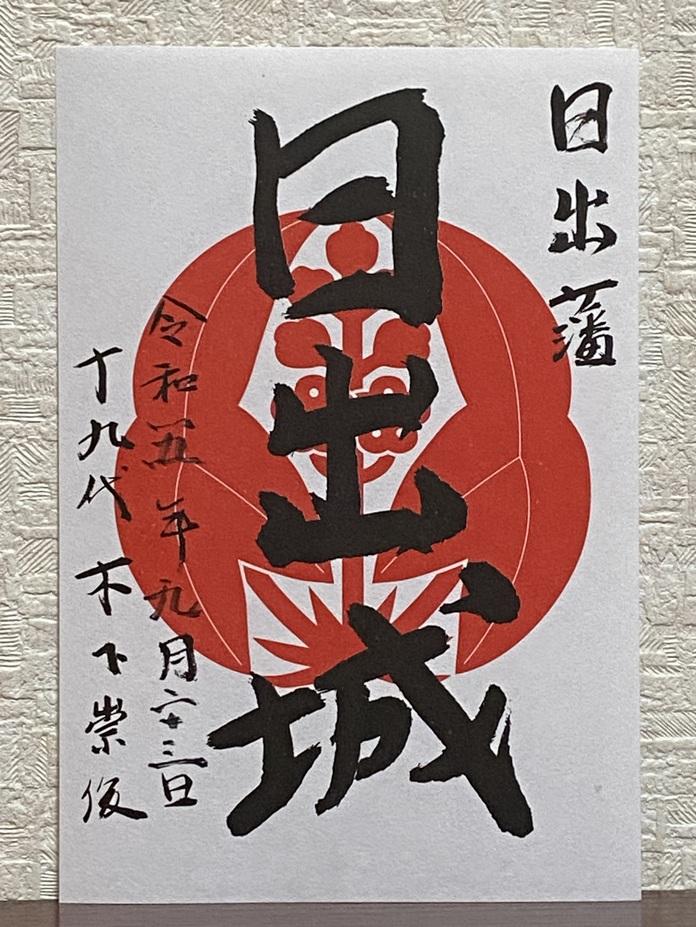 日出藩
日出城
令和五年九月二十三日
十九代 木下崇俊